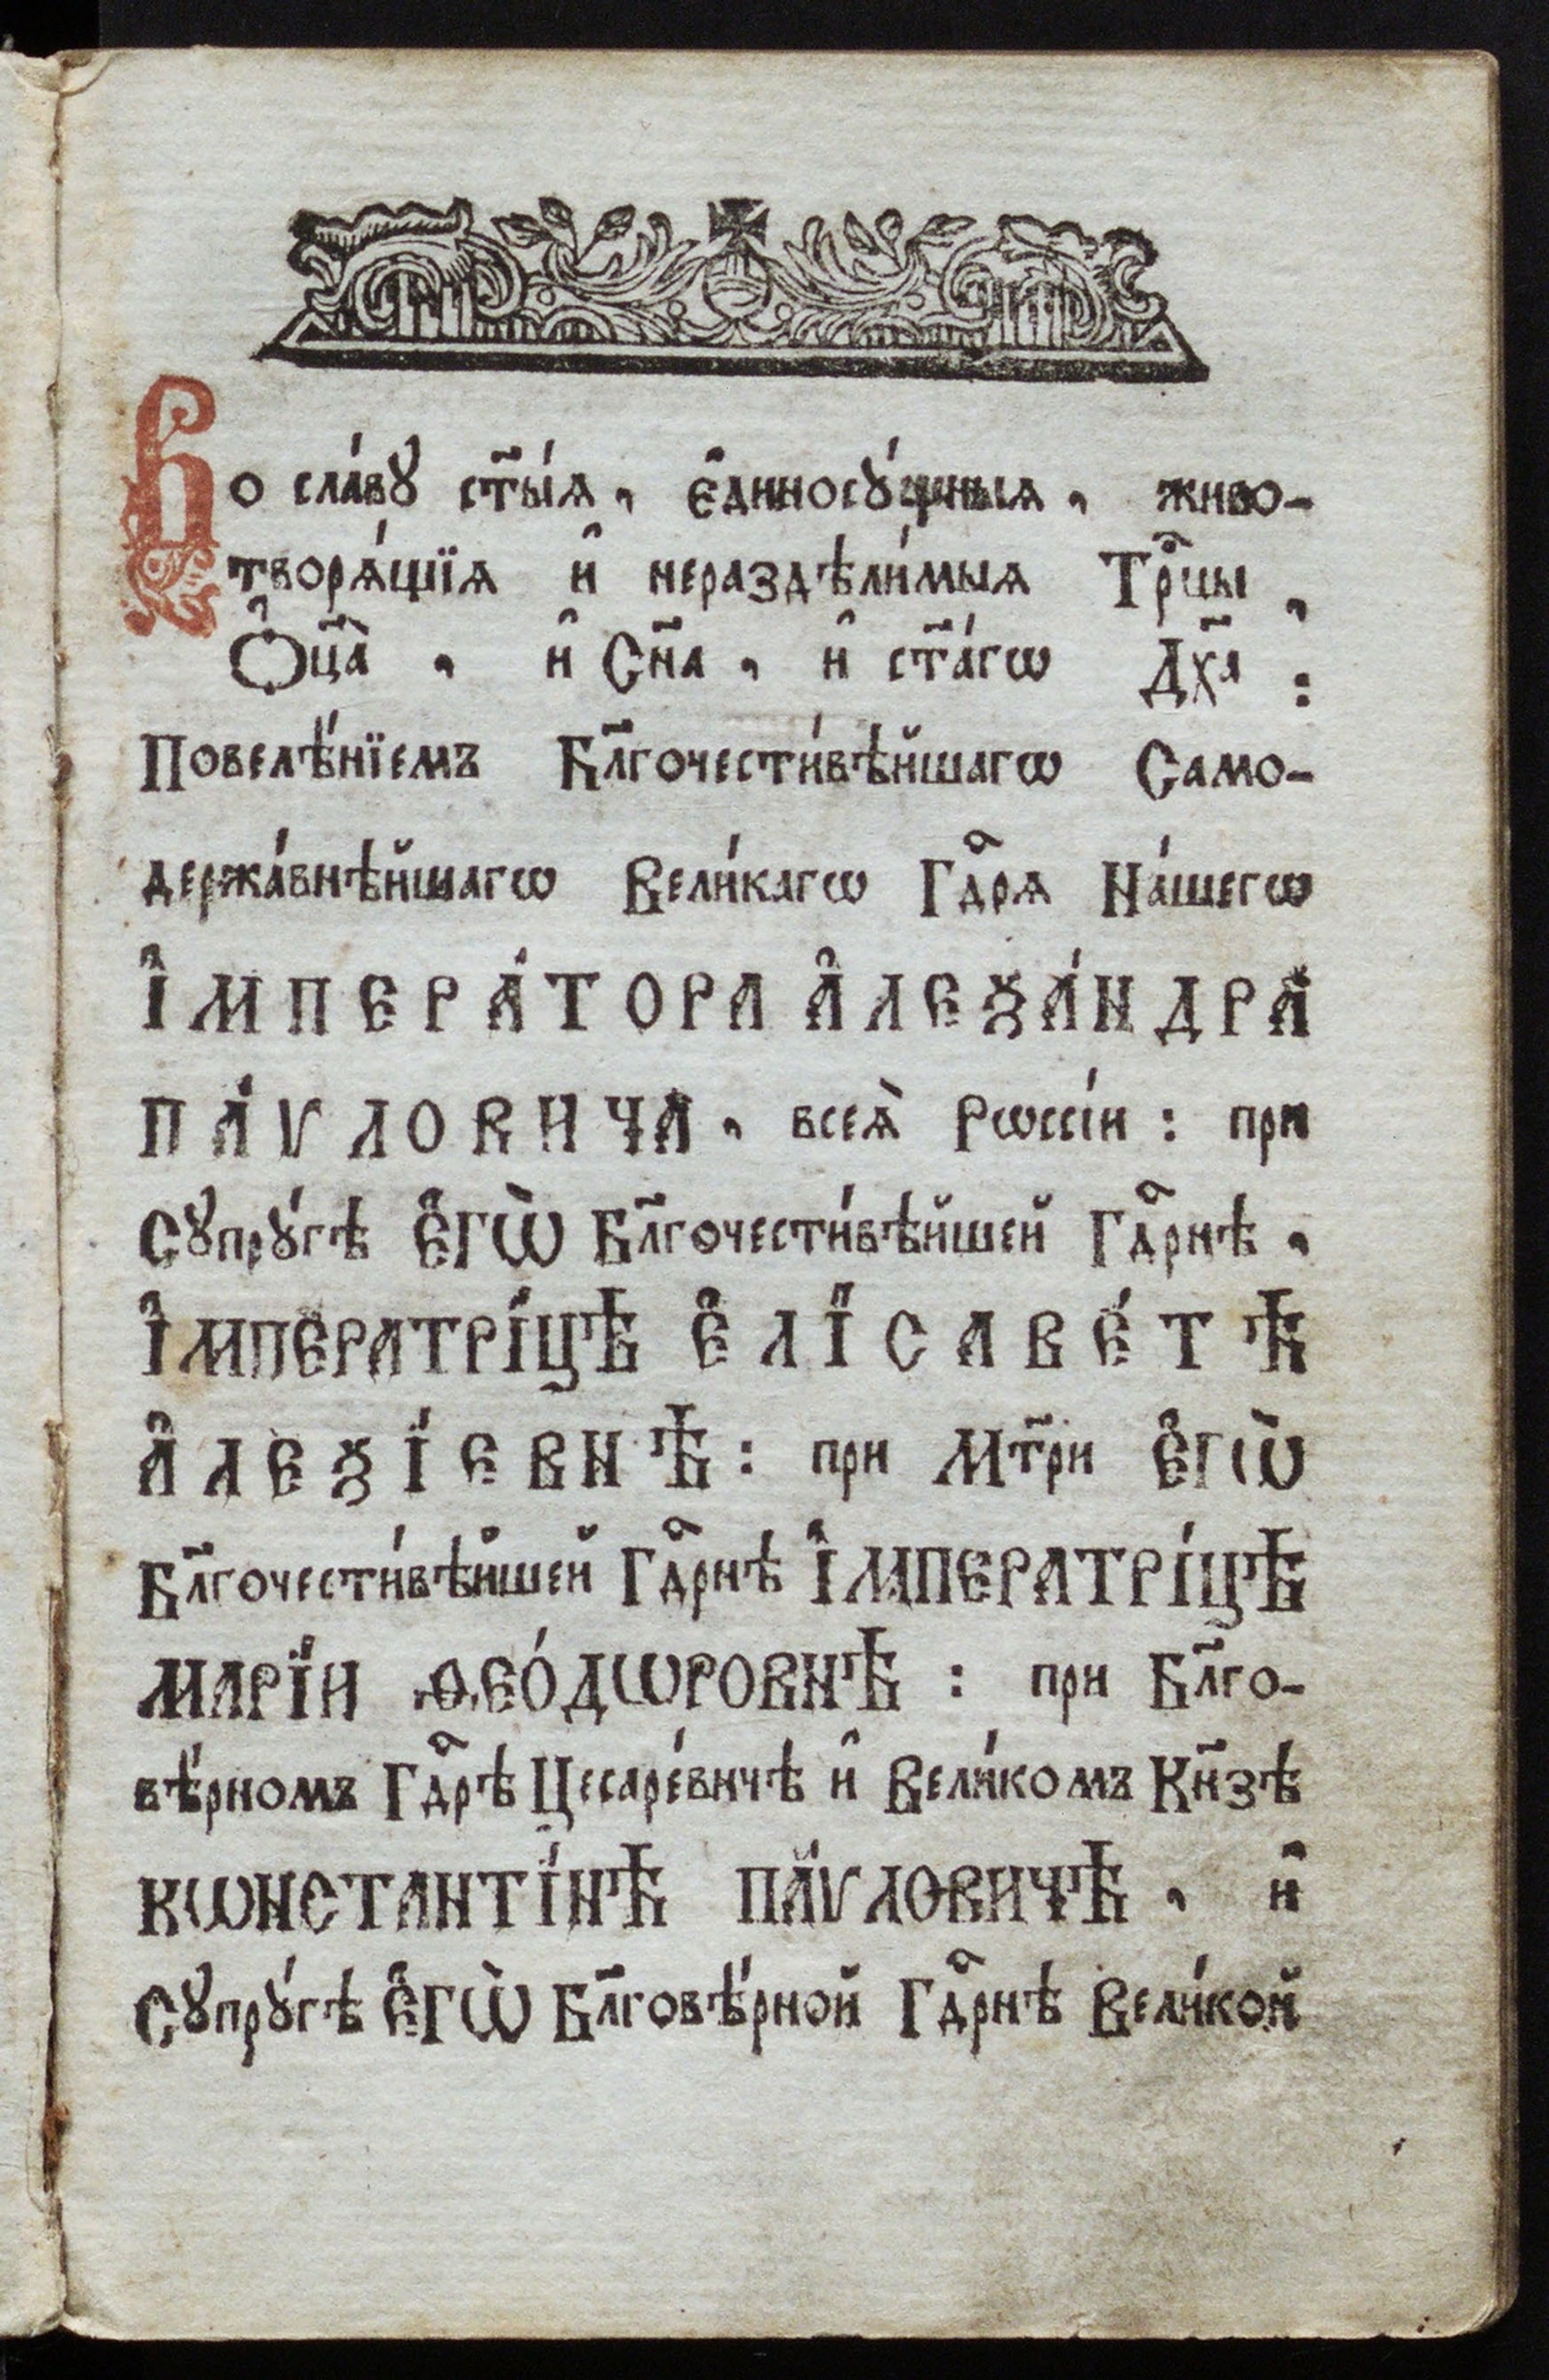 Во сла́вꙋ ст҃ы́ѧ, є҆диносꙋ́щныѧ, живо-
творѧ́щїѧ и҆ нераздѣли́мыѧ Трⷪ҇цы,
Ѻ҆ц҃а̀, и҆ Сн҃а, и҆ ст҃а́гѡ Дх҃а:
Повелѣ́нїемъ Бл҃гочести́вѣйшагѡ Само-
держа́внѣйшагѡ Вели́кагѡ Гдⷭ҇рѧ На́шегѡ
І҆МПЕРА́ТОРА А҆ЛЕѮА́НДРА
ПА́ѴЛОВИЧА, всеѧ̀ Рѡссі́и: при
Сꙋпрꙋ́гѣ Е҆ГѠ̀ Бл҃гочести́вѣйшей Гдⷭ҇рнѣ,
І҆МПЕРАТРІ́ЦѢ Е҆ЛІСАВЕ́ТѢ
А҆ЛЕѮІ́ЕВНѢ: при Мт҃ри Е҆ГѠ̀
Бл҃гочести́вѣйшей Гдⷭ҇рнѣ І҆МПЕРАТРІ́ЦѢ
МАРІ́И ѲЕО́ДѠРОВНѢ: при Бл҃го-
вѣ́рномъ Гдⷭ҇рѣ Цесаре́вичѣ и҆ Вели́комъ Кн҃зѣ
КѠНСТАНТІ́НѢ ПА́ѴЛОВИЧѢ, и҆
Сꙋпрꙋ́гѣ Е҆ГѠ̀ Бл҃говѣ́рной Гдⷭ҇рнѣ Вели́кой